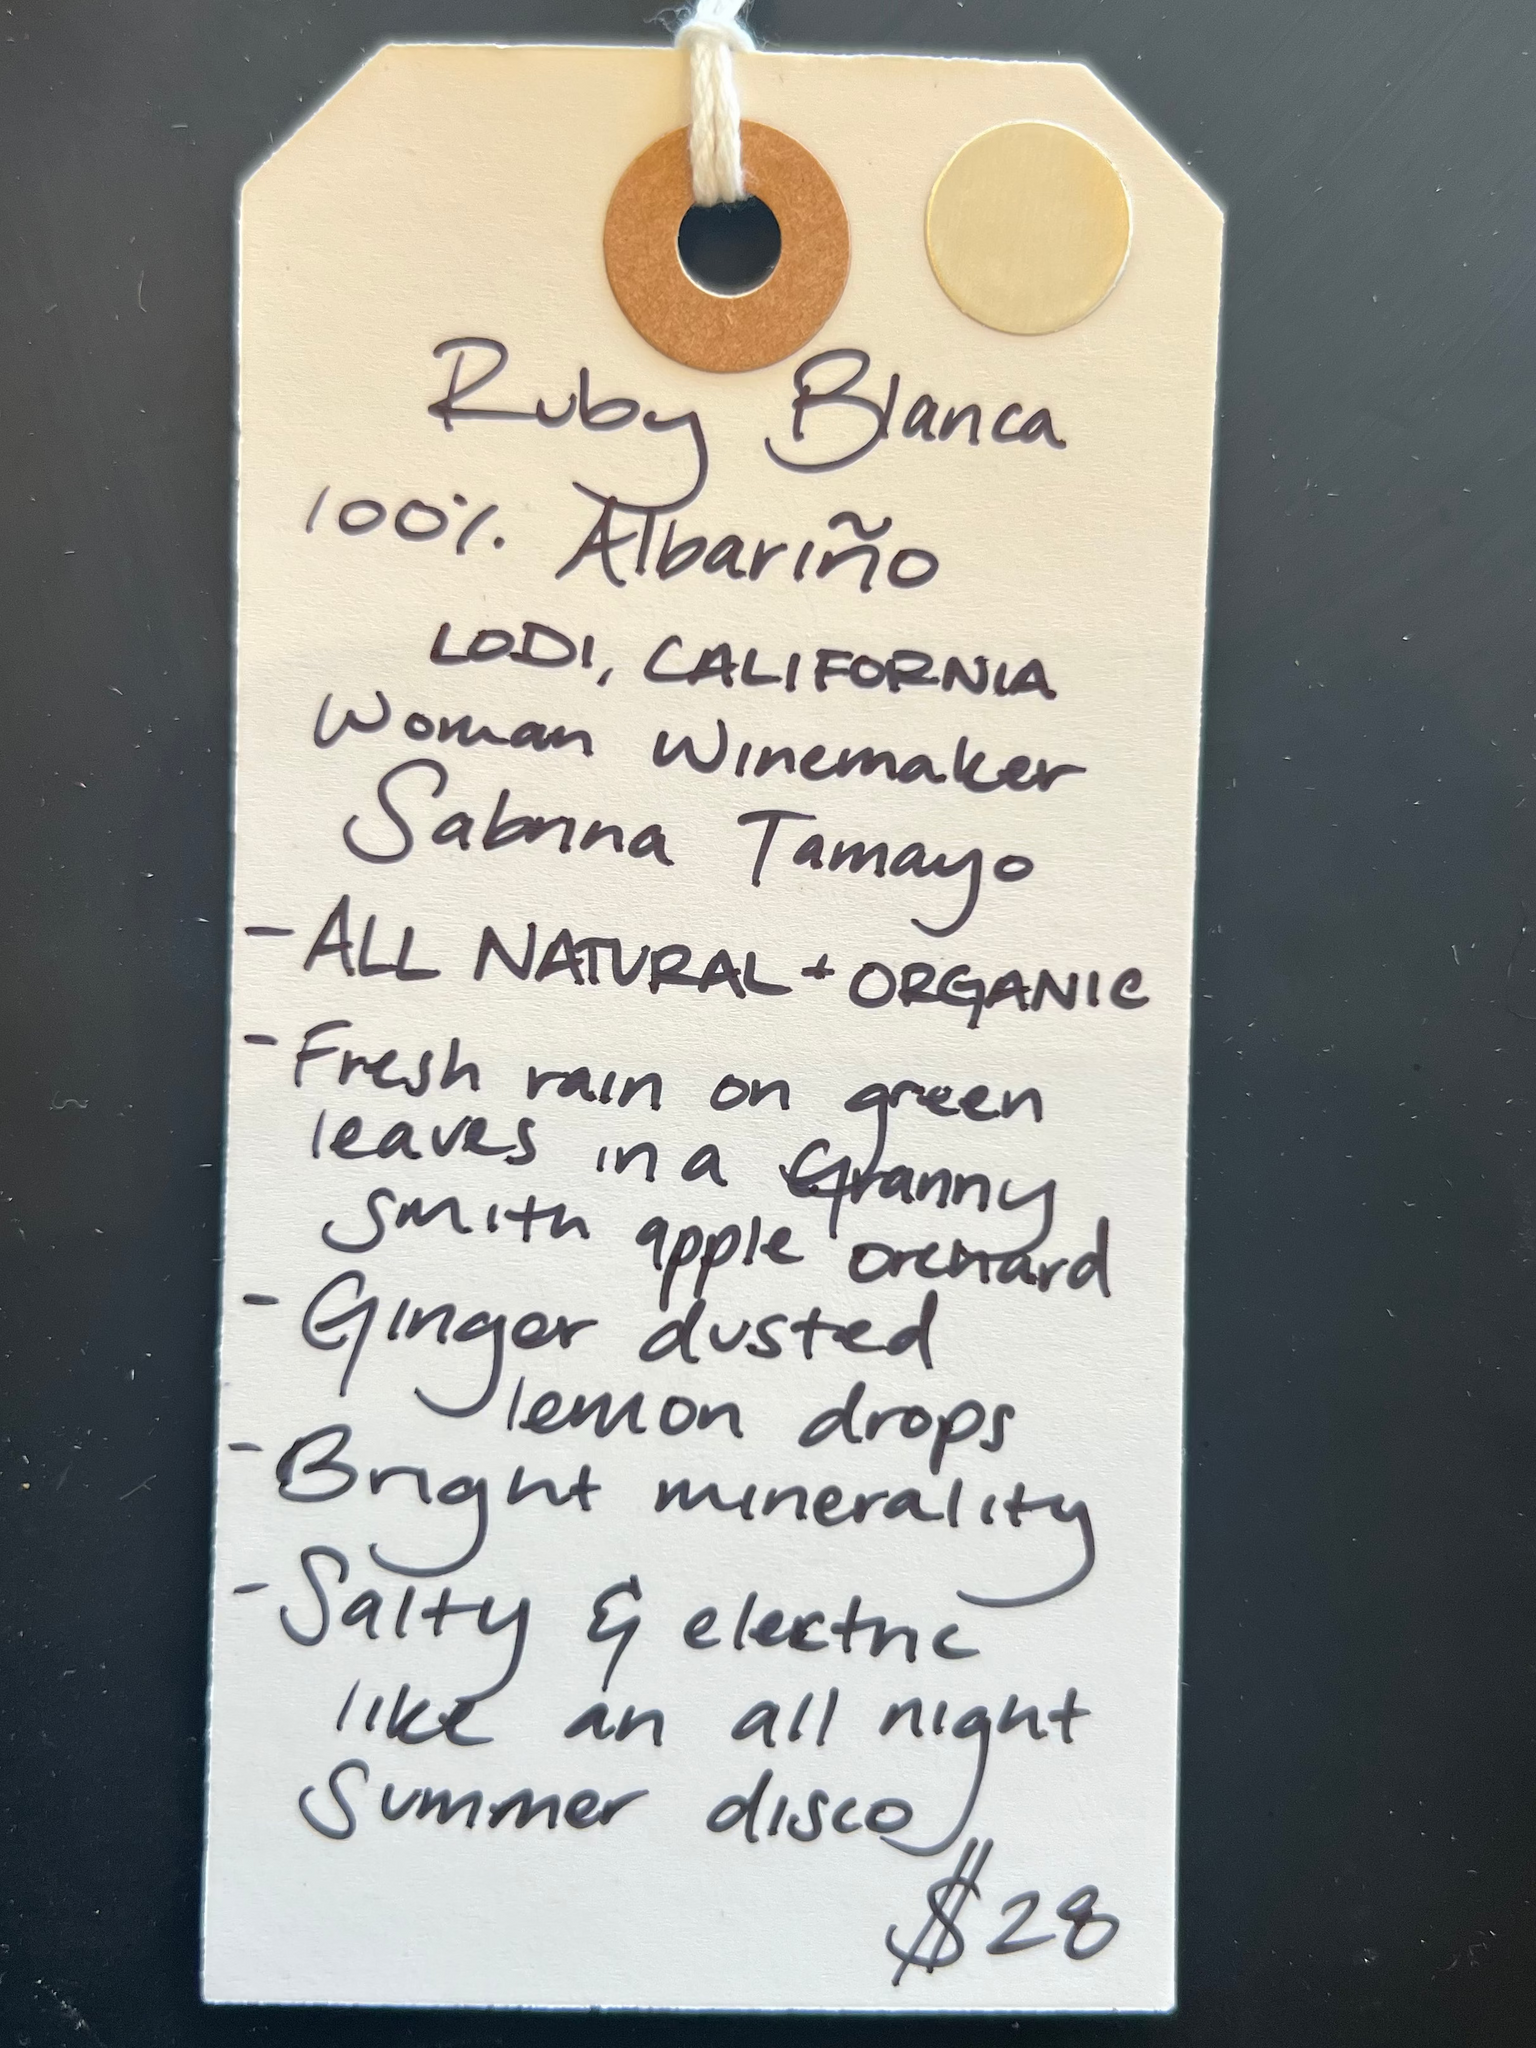 Ruby Blanca
100% Albariño
LODI, CALIFORNIA
Woman Winemaker
Sabrina Tamayo
- ALL NATURAL + ORGANIC
- Fresh rain on green
leaves in a Granny
Smith apple orchard
- Ginger dusted
lemon drops
- Bright minerality
- Salty & electric
like an all night
Summer disco
$28